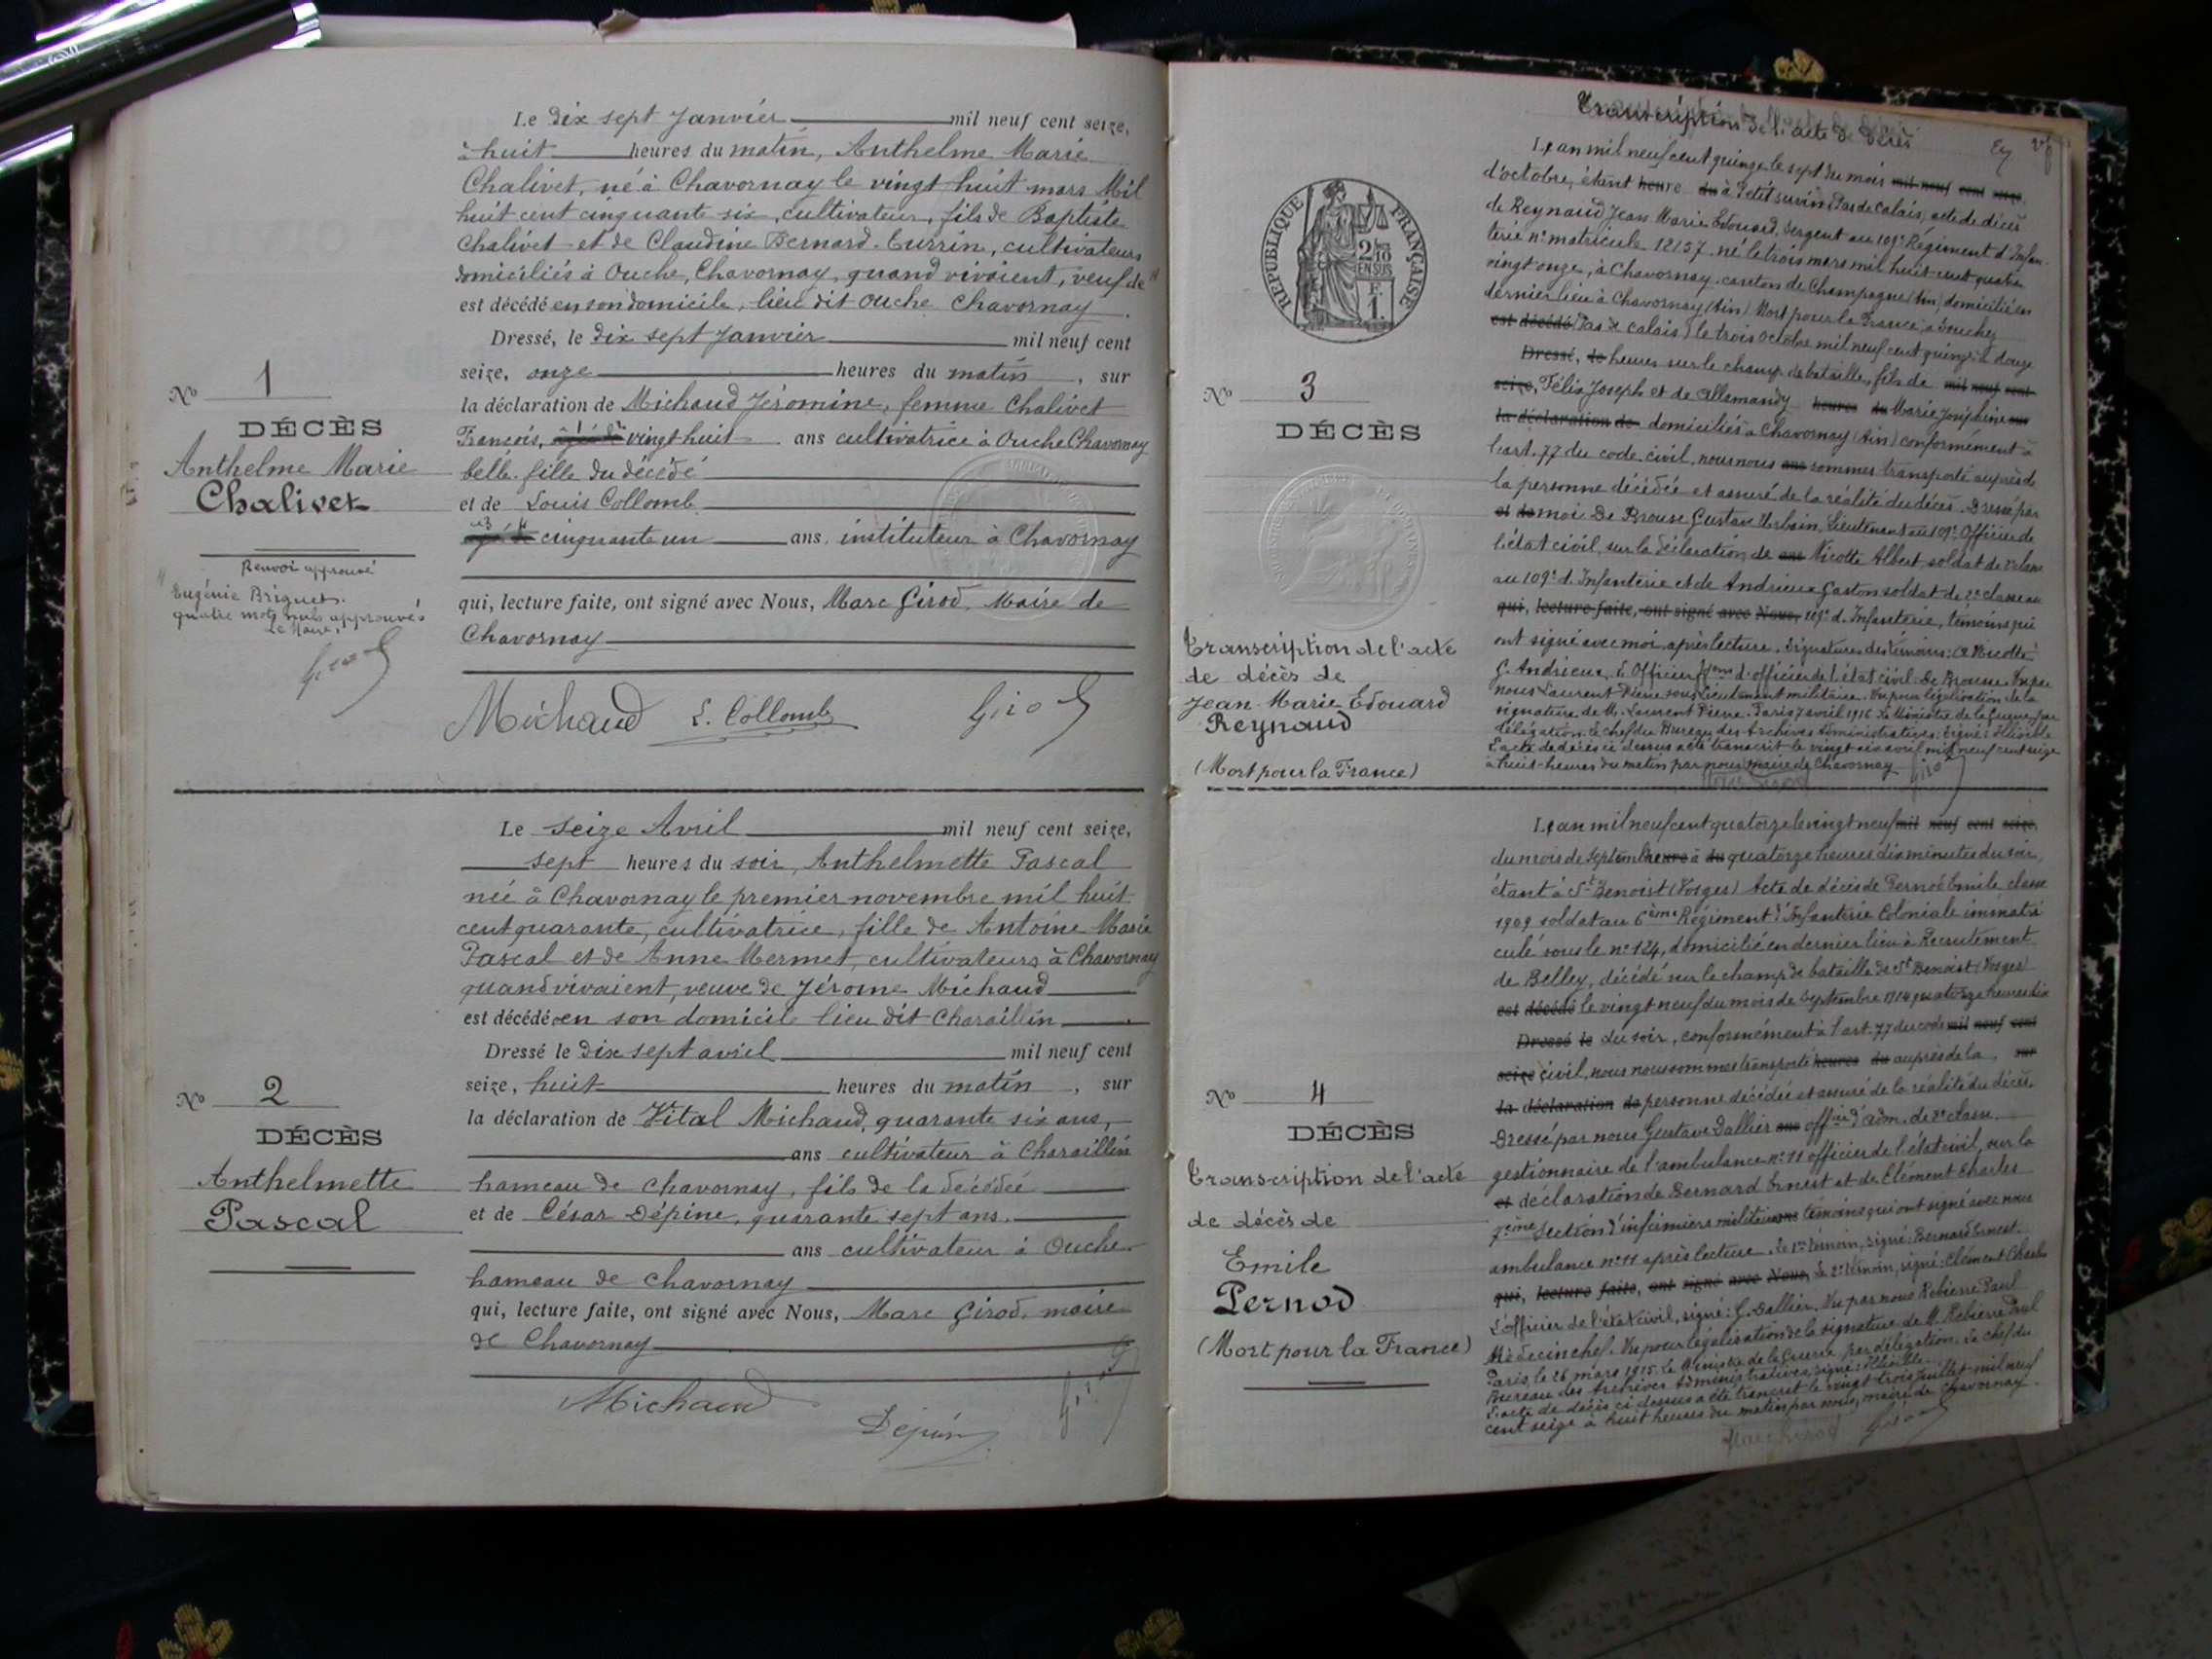 Le dix sept Janvier mil neuf cent seize,
à huit heures du matin, Anthelme Marie
Chalivet, né à Chavornay le vingt huit mars Mil
huit cent cinquante six, cultivateur, fils de Baptiste
Chalivet et de Claudine Bernard-Turrin, cultivateurs
domiciliés à Ouche, Chavornay, quand vivaient, veuf de
est décédé en son domicile, lieu dit Ouche Chavornay.
Dressé, le dix sept Janvier mil neuf cent
seize, onze heures du matin, sur
la déclaration de Michaud Jéromine, femme Chalivet
François, vingt huit ans cultivatrice à Ouche Chavornay
belle-fille du décédé
et de Louis Collomb
cinquante un ans, instituteur à Chavornay
qui, lecture faite, ont signé avec Nous, Marc Girod, Maire de
Chavornay
Michaud L. Collomb Girod
No 1
DÉCÈS
Anthelme Marie
Chalivet
Renvoi approuvé
Eugénie Briguet.
quatre mots nuls approuvés
Le Maire,
Girod
Le seize Avril mil neuf cent seize,
sept heures du soir, Anthelmette Pascal
née à Chavornay le premier novembre mil huit
cent quarante, cultivatrice, fille de Antoine Marie
Pascal et de Anne Mermet, cultivateurs à Chavornay
quand vivaient, veuve de Jérome Michaud
est décédée en son domicile lieu dit Charaillin
Dressé le dix sept avril mil neuf cent
seize, huit heures du matin, sur
la déclaration de Vital Michaud, quarante six ans,
ans cultivateur à Charaillin
hameau de Chavornay, fils de la décédée
et de César Dépine, quarante sept ans.
ans cultivateur à Ouche
hameau de Chavornay
qui, lecture faite, ont signé avec Nous, Marc Girod, maire
de Chavornay
Michaud Dépine Girod
No 2
DÉCÈS
Anthelmette
Pascal
Transcription de l'acte de décès
RÉPUBLIQUE FRANÇAISE
2/10 EN SUS
F. 1.
L'an mil neuf cent quinze le sept du mois mil neuf cent seize,
d'octobre, étant heure du à Petit servin, Pas de Calais, acte de décès
de Reynaud Jean Marie Edouard, Sergent au 109e Régiment d'Infan-
terie n° matricule 12157, né le trois mars mil huit cent quatre
vingt onze, à Chavornay, canton de Champagne (Ain) domicilié en
dernier lieu à Chavornay (Ain) Mort pour la France, à Souchez
est décédé (Pas de Calais) le trois octobre mil neuf cent quinze à douze
Dressé, le heures sur le champ de bataille, fils de mil neuf cent
seize, Félix Joseph et de Allemandy heures du Marie Joséphine sur
la déclaration de domiciliés à Chavornay (Ain) conformément à
l'art. 77 du code civil, nous nous ans sommes transporté auprès de
la personne décédée et assuré de la réalité du décès. Dressé par
et de moi De Brouse Gustave Urbain, Lieutenant au 109e Officier de
l'état civil, sur la déclaration de ans Nicotte Albert, soldat de 2e classe
au 109e d'Infanterie et de Andrieux Gaston soldat de 2e classe au
qui, lecture faite, ont signé avec Nous, 109e d'Infanterie, témoins qui
ont signé avec moi après lecture. Signatures des témoins: A Nicotte
G. Andrieux, L'Officier d'officier de l'état civil: De Brouse. Vu par
nous Laurent Pierre sous Lieutenant militaire. Vu pour légalisation de la
signature de M. Laurent Pierre. Paris 7 avril 1916 Le Ministre de la Guerre, par
délégation: le chef du Bureau des Archives Administratives: Signé: Illisible
L'acte de décès ci-dessus a été transcrit le vingt six avril mil neuf cent seize
à huit-heures du matin par nous maire de Chavornay
Marc Girod Girod
No 3
DÉCÈS
Transcription de l'acte
de décès de
Jean-Marie Edouard
Reynaud
(Mort pour la France)
L'an mil neuf cent quatorze le vingt neuf mil neuf cent seize,
du mois de Septembre heure à du quatorze heures dix minutes du soir,
étant à St Benoist (Vosges) Acte de décès de Pernod Emile classe
1909 soldat au 6ème Régiment d'Infanterie Coloniale immatri
culé sous le n° 124, domicilié en dernier lieu à Recrutement
de Belley, décédé sur le champ de bataille de St Benoist (Vosges)
est décédé le vingt neuf du mois de Septembre 1914 quatorze heures dix
Dressé le du soir, conformément à l'art. 77 du code mil neuf cent
seize civil, nous nous sommes transporté heures du auprès de la sur
la déclaration de personne décédée et assuré de la réalité du décès.
Dressé par nous Gustave Dallier ans offier d'adm. de 2e classe.
gestionnaire de l'ambulance n° 11 officier de l'état civil, sur la
et déclaration de Bernard Ernest et de Clément Charles
7ème Section d'infirmiers militaires ans témoins qui ont signé avec nous
ambulance n° 11 après lecture. Le 1er témoin, signé: Bernard Ernest.
qui, lecture faite, ont signé avec Nous, Le 2e témoin, signé: Clément Charles
L'officier de l'état civil, signé: G. Dallier. Vu par nous Rebierre Paul
Médecin chef. Vu pour légalisation de la signature de M. Rebierre Paul
Paris, le 26 mars 1915. Le Ministre de la Guerre par délégation. Le chef du
Bureau des Archives Administratives, signé: Illisible.
L'acte de décès ci-dessus a été transcrit le vingt trois juillet mil neuf
cent seize à huit heures du matin par nous, maire de Chavornay.
Marc Girod Girod
No 4
DÉCÈS
Transcription de l'acte
de décès de
Emile
Pernod
(Mort pour la France)